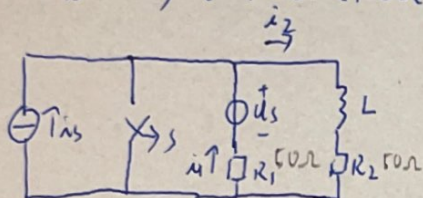 i₂
+
is
s
us
L
-
i₁
R₁ 50Ω
R₂ 50Ω